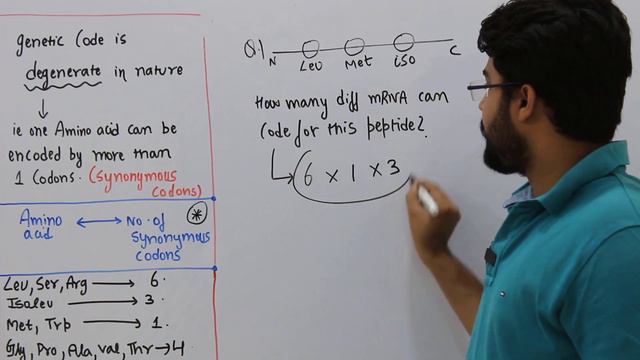 genetic Code is
degenerate in nature
ie one Amino acid can be
encoded by more than
1 Codons. (Synonymous
codons)
Amino
acid
No. of
Synonymous
codons
Leu, Ser, Arg → 6.
Isoleu → 3.
Met, Trp → 1.
Gly, Pro, Ala, Val, Thr → 4
Q.1 N C
Leu Met iso
How many diff mRNA can
Code for this peptide?
6 × 1 × 3